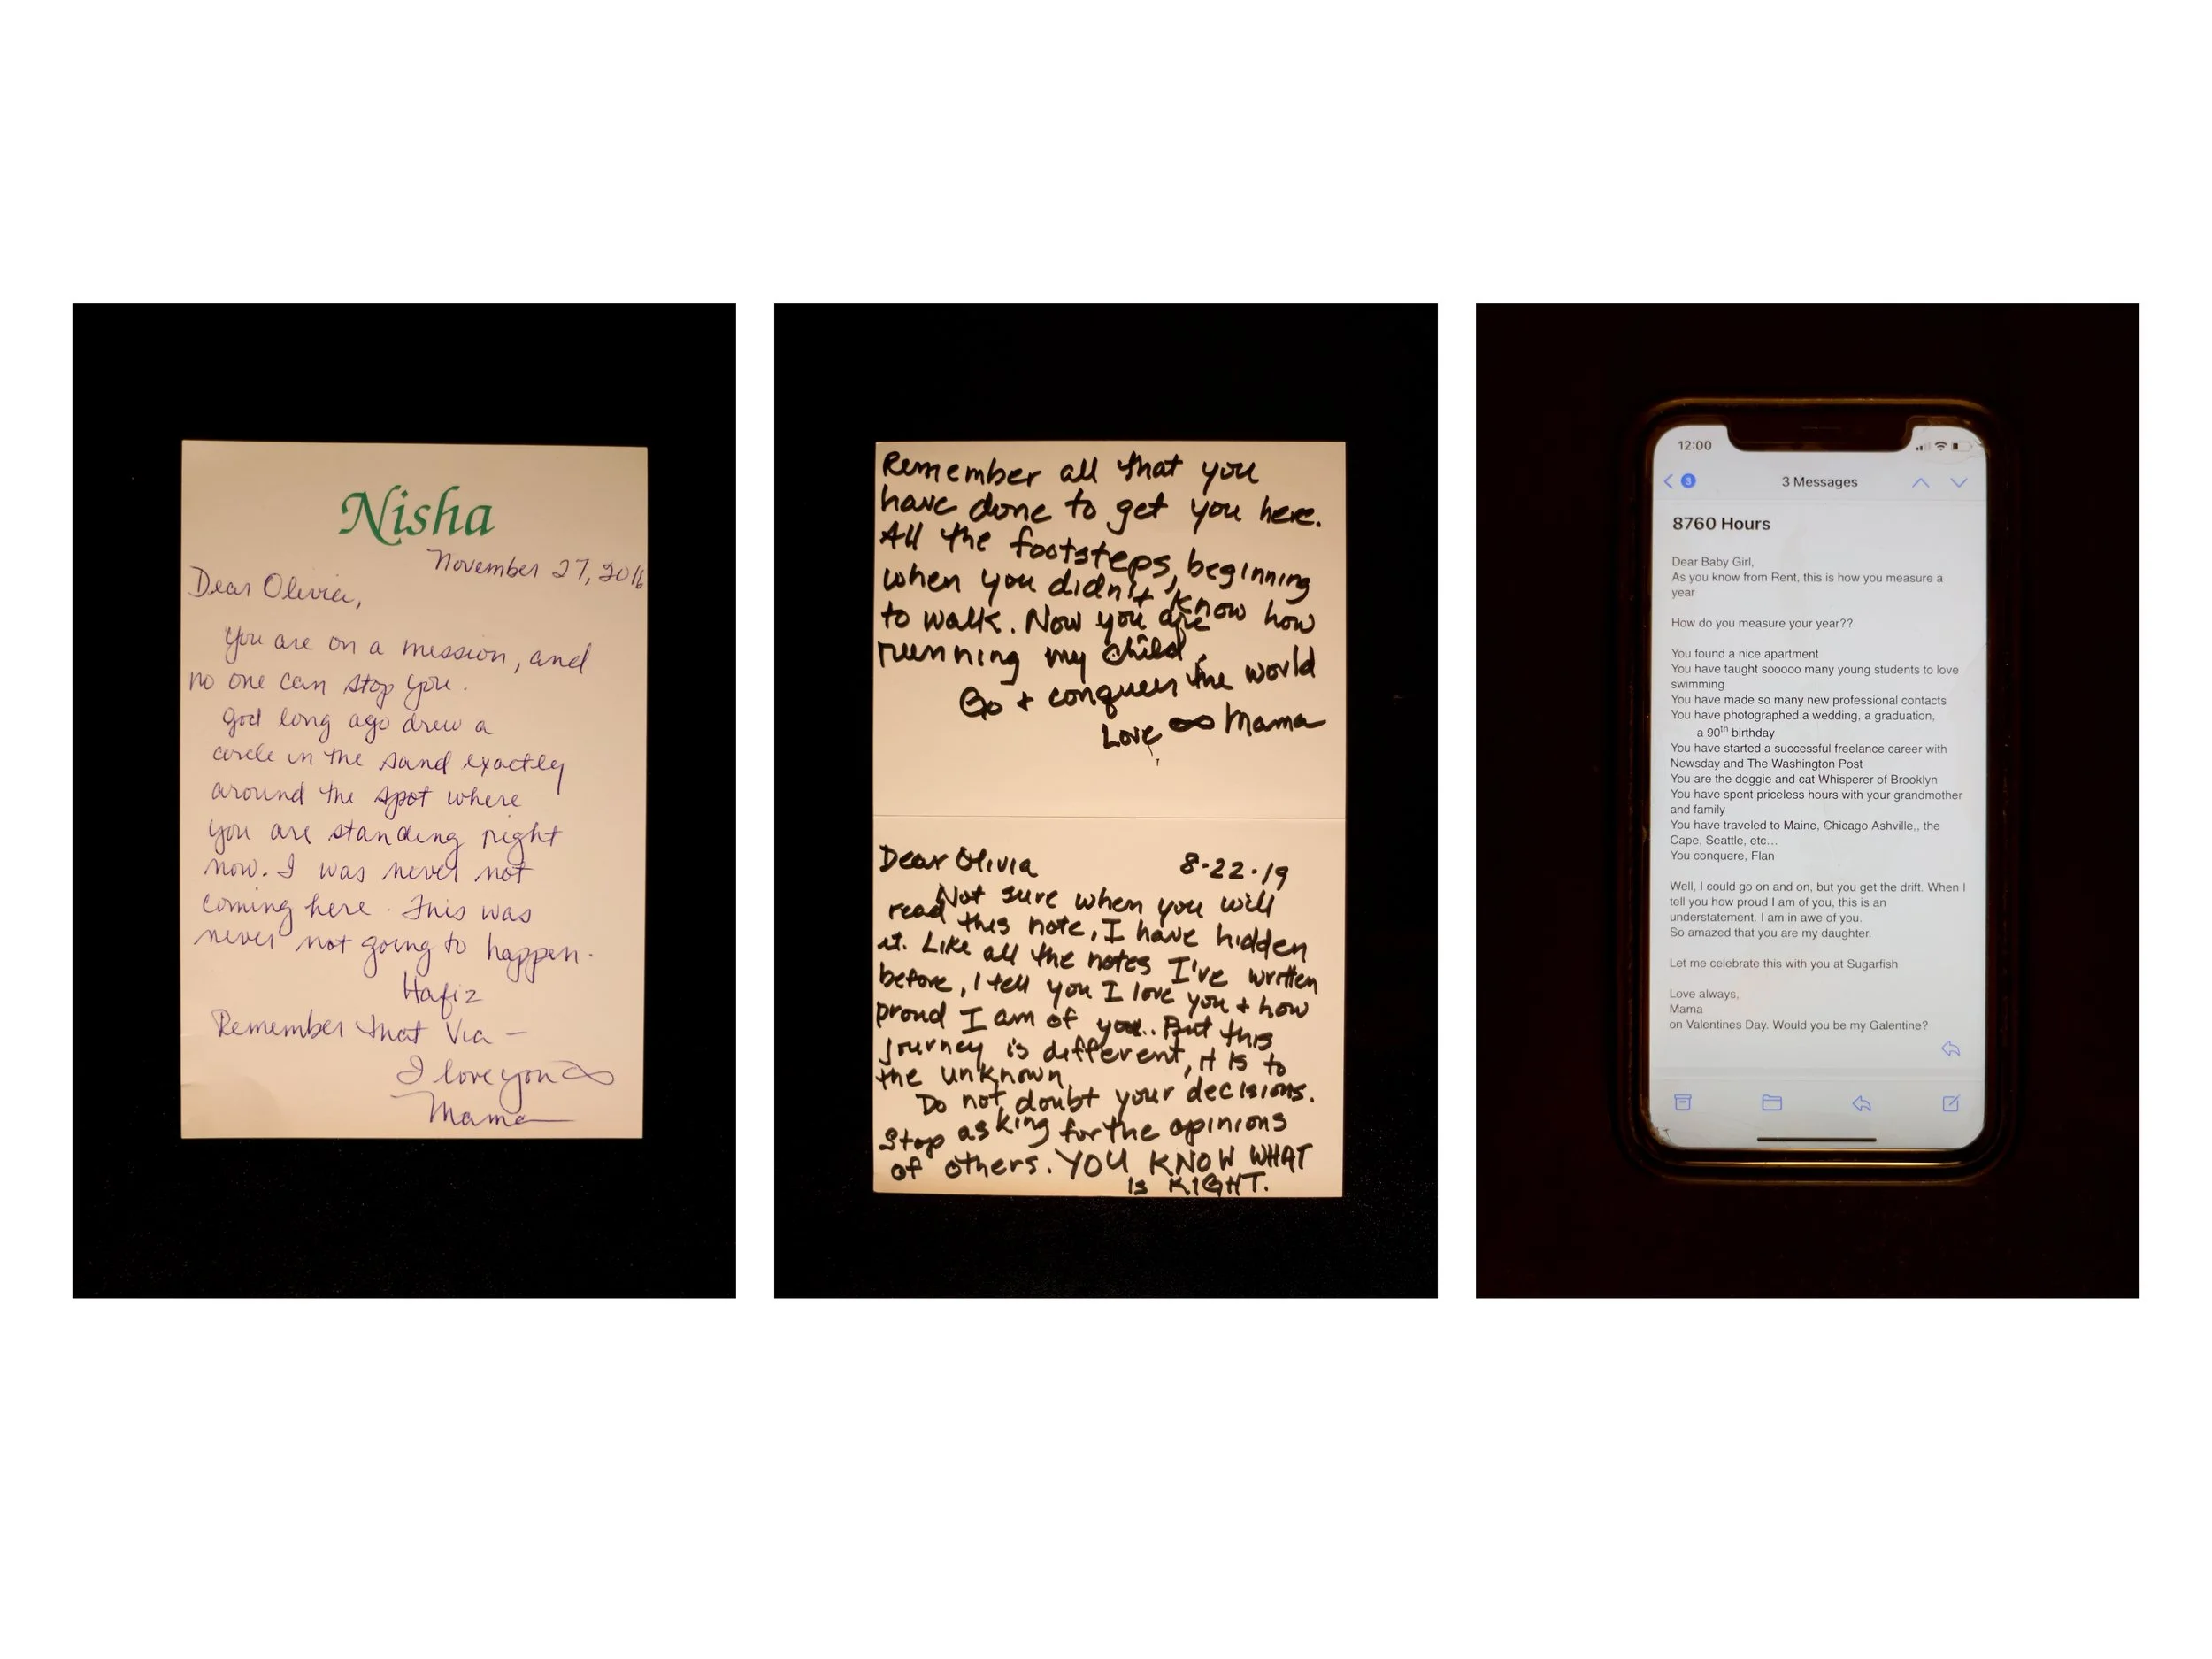 Nisha
November 27, 2016
Dear Olivia,
You are on a mission, and
no one can stop you.
God long ago drew a
circle in the sand exactly
around the spot where
you are standing right
now. I was never not
coming here. This was
never not going to happen.
Hafiz
Remember that Via —
I love you ∞
Mama
Remember all that you
have done to get you here.
All the footsteps, beginning
when you didn't know how
to walk. Now you are
running my child.
Go + conquer the world
Love ∞ Mama
Dear Olivia 8-22-19
Not sure when you will
read this note, I have hidden
it. Like all the notes I've written
before, I tell you I love you + how
proud I am of you.. But this
journey is different, it is to
the unknown
Do not doubt your decisions.
Stop asking for the opinions
of others. YOU KNOW WHAT
is RIGHT.
12:00
3
3 Messages
8760 Hours
Dear Baby Girl,
As you know from Rent, this is how you measure a
year
How do you measure your year??
You found a nice apartment
You have taught sooooo many young students to love
swimming
You have made so many new professional contacts
You have photographed a wedding, a graduation,
a 90th birthday
You have started a successful freelance career with
Newsday and The Washington Post
You are the doggie and cat Whisperer of Brooklyn
You have spent priceless hours with your grandmother
and family
You have traveled to Maine, Chicago Ashville,, the
Cape, Seattle, etc...
You conquere, Flan
Well, I could go on and on, but you get the drift. When I
tell you how proud I am of you, this is an
understatement. I am in awe of you.
So amazed that you are my daughter.
Let me celebrate this with you at Sugarfish
Love always,
Mama
on Valentines Day. Would you be my Galentine?